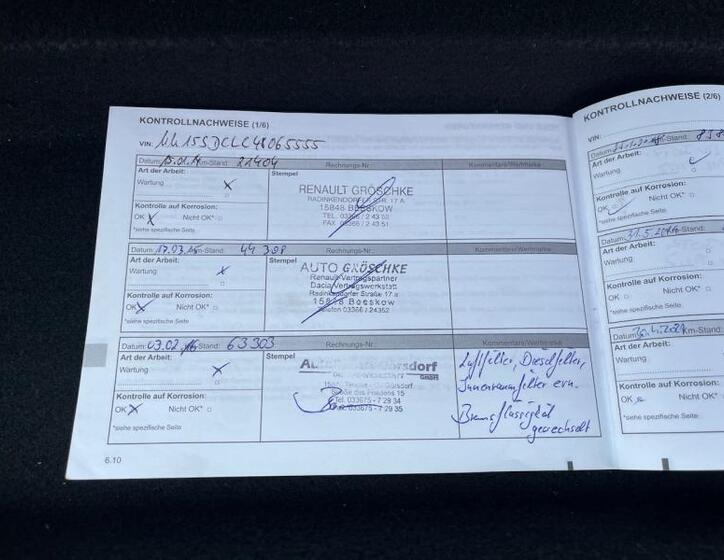 KONTROLLNACHWEISE (1/6)
VIN:
Datum: 15.01.14 Km-Stand: 21404 Rechnungs-Nr. Kommentare/Wertmarke
Art der Arbeit:
Wartung X
Stempel
RENAULT GRÖSCHKE
RADINKENDORFER STR. 17 A
15848 BEESKOW
TEL. 03366 / 2 43 52
FAX. 03366 / 2 43 51
Kontrolle auf Korrosion:
OK X Nicht OK*
*siehe spezifische Seite
Datum: 17.03. Km-Stand: 44 398 Rechnungs-Nr.: Kommentare/Wertmarke
Art der Arbeit:
Wartung X
Stempel
AUTO GRÖSCHKE
Renault-Vertragspartner
Dacia Vertragswerkstatt
Radinkendorfer Straße 17 a
15848 Beeskow
Telefon 03366 / 24352
Kontrolle auf Korrosion:
OK X Nicht OK*
*siehe spezifische Seite
Datum: 03.02. 16 Km-Stand: 63303 Rechnungs-Nr. Kommentare/Wertmarke
Art der Arbeit:
Wartung X
Stempel
GmbH
Straße des Friedens 15
Tel. 033675 - 7 29 34
033675 - 7 29 35
Luftfilter, Dieselfilter,
Innenraumfilter ern.
Bremsflüssigkeit
gewechselt
Kontrolle auf Korrosion:
OK X Nicht OK*
*siehe spezifische Seite
6.10
KONTROLLNACHWEISE (2/6)
VIN:
Datum: Km-Stand:
Art der Arbeit:
Wartung
Kontrolle auf Korrosion:
OK Nicht OK*
*siehe spezifische Seite
Datum: 31.5. Km-Stand:
Art der Arbeit:
Wartung
Kontrolle auf Korrosion:
OK Nicht OK*
*siehe spezifische Seite
Km-Stand:
Art der Arbeit:
Wartung
Kontrolle auf Korrosion:
OK Nicht OK*
*siehe spezifische Seite